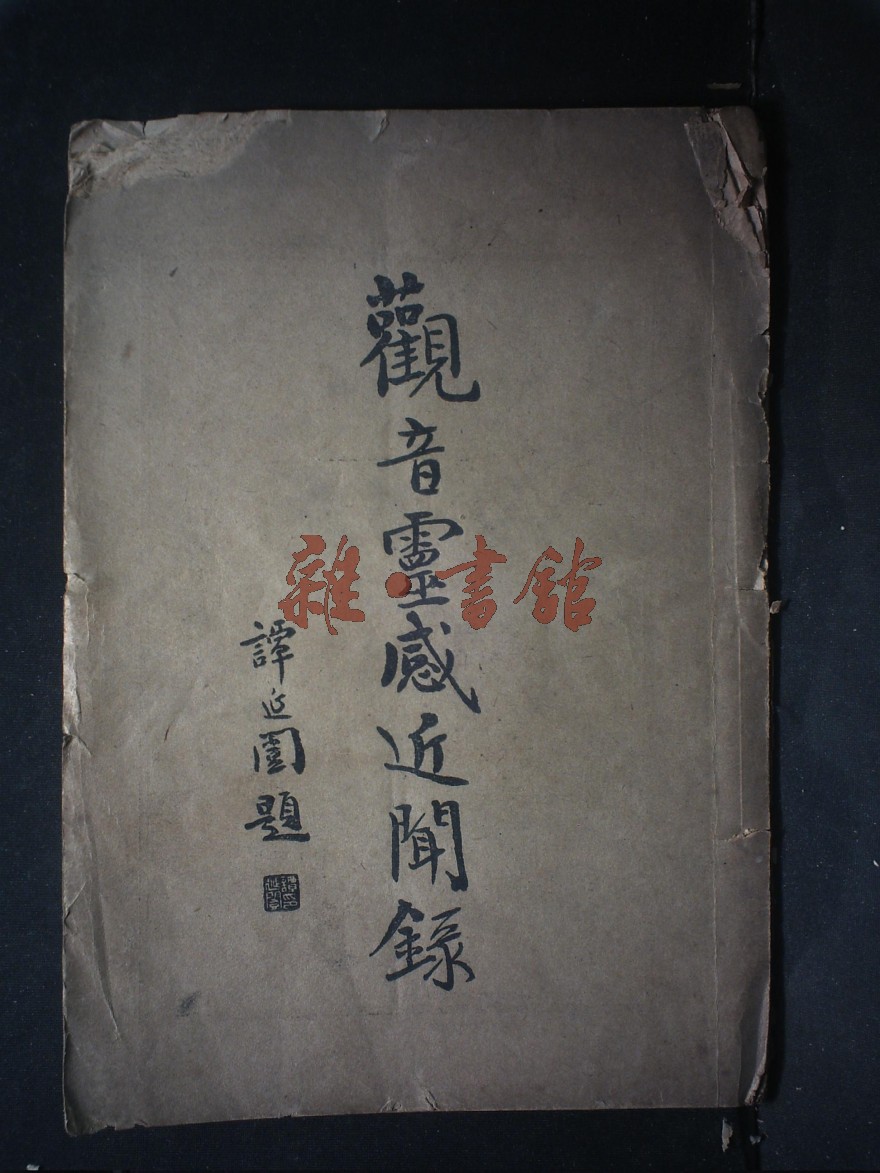 觀音靈感近聞錄
譚延闓題
雜·書館